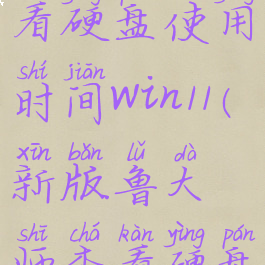 看硬盘使用
shí jiān
时间win11(
xīn bǎn lǔ dà
新版鲁大
shī chá kàn yìng pán
师查看硬盘